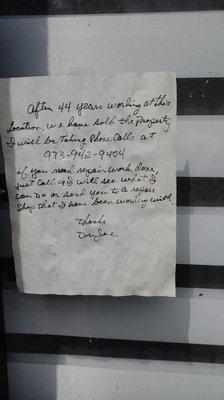 After 44 years working at this
location, we have sold the Property
I will be Taking Phone Calls at
973-942-9404
if you need repair work done,
just Call & I will see what I
can Do or send you to a repair
Shop that I have been working with.
thanks